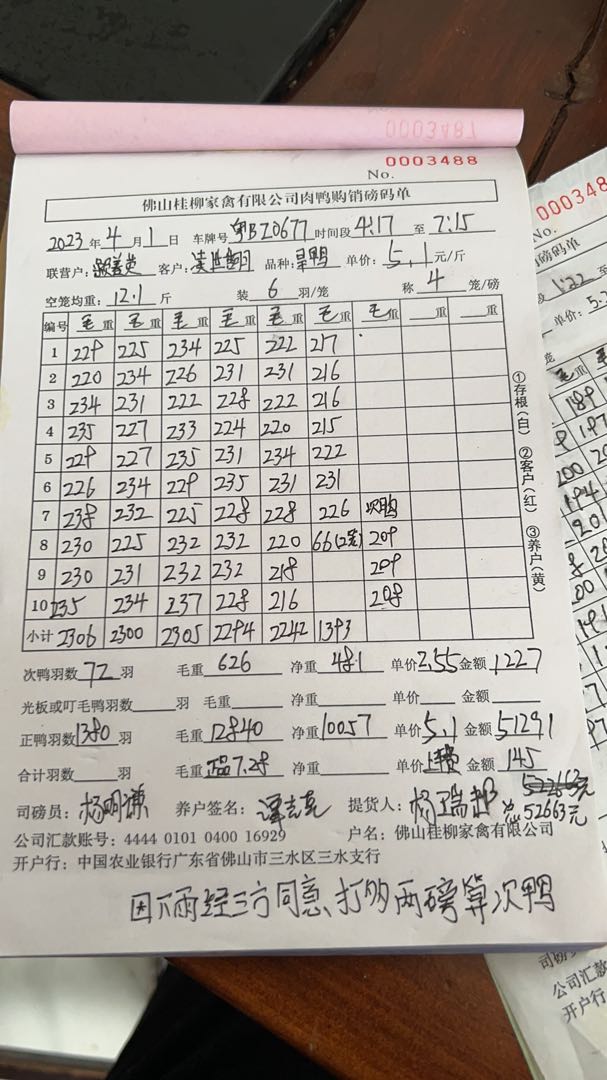 0003487
0003488
No.
佛山桂柳家禽有限公司肉鸭购销磅码单
2023年4月1日 车牌号 粤BZ0677 时间段 4:17 至 7:15
联营户: 客户: 品种: 旱鸭 单价: 5.1 元/斤
空笼均重: 12.1 斤 装 6 羽/笼 称 4 笼/磅
编号 毛重 毛重 毛重 毛重 毛重 毛重 毛重 重 重
1 229 225 234 225 222 217
2 220 234 226 231 231 216
3 234 231 222 228 222 216
4 235 227 233 224 220 215
5 229 227 235 231 234 222
6 226 234 229 235 231 231
7 238 232 225 228 228 226 次鸭
8 230 225 232 232 220 66(2笼) 209
9 230 231 232 232 218 209
10 235 234 237 228 216 208
小计 2306 2300 2305 2294 2242 1393
次鸭羽数 72 羽 毛重 626 净重 481 单价 2.55 金额 1227
光板或叮毛鸭羽数 羽 毛重 净重 单价 金额
正鸭羽数 1380 羽 毛重 12840 净重 10057 单价 5.1 金额 51291
合计羽数 羽 毛重 正品7.28 净重 单价 上车费 金额 145
司磅员: 杨明谦 养户签名: 提货人: 杨瑞郡 总52663元
公司汇款账号: 4444 0101 0400 16929 户名: 佛山桂柳家禽有限公司
开户行: 中国农业银行广东省佛山市三水区三水支行
因下雨经三方同意、打多两磅算次鸭
①存根(白) ②客户(红) ③养户(黄)
000348
No.
磅码单
1:22 至
单价: 5.
毛重
189
197
200
194
201
200
司磅
公司汇款
开户行: